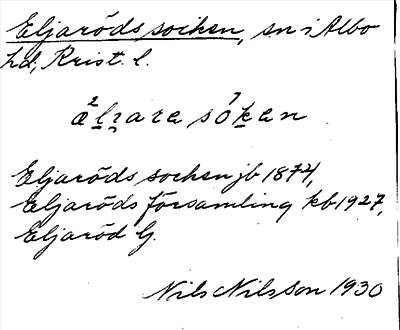 Eljaröds socken, sn i Albo
hd, Krist. l.
æ²lzare sö⁷ken
Eljaröds socken jb 1874,
Eljaröds församling kb 1927,
Eljaröd G.
Nils Nilsson 1930